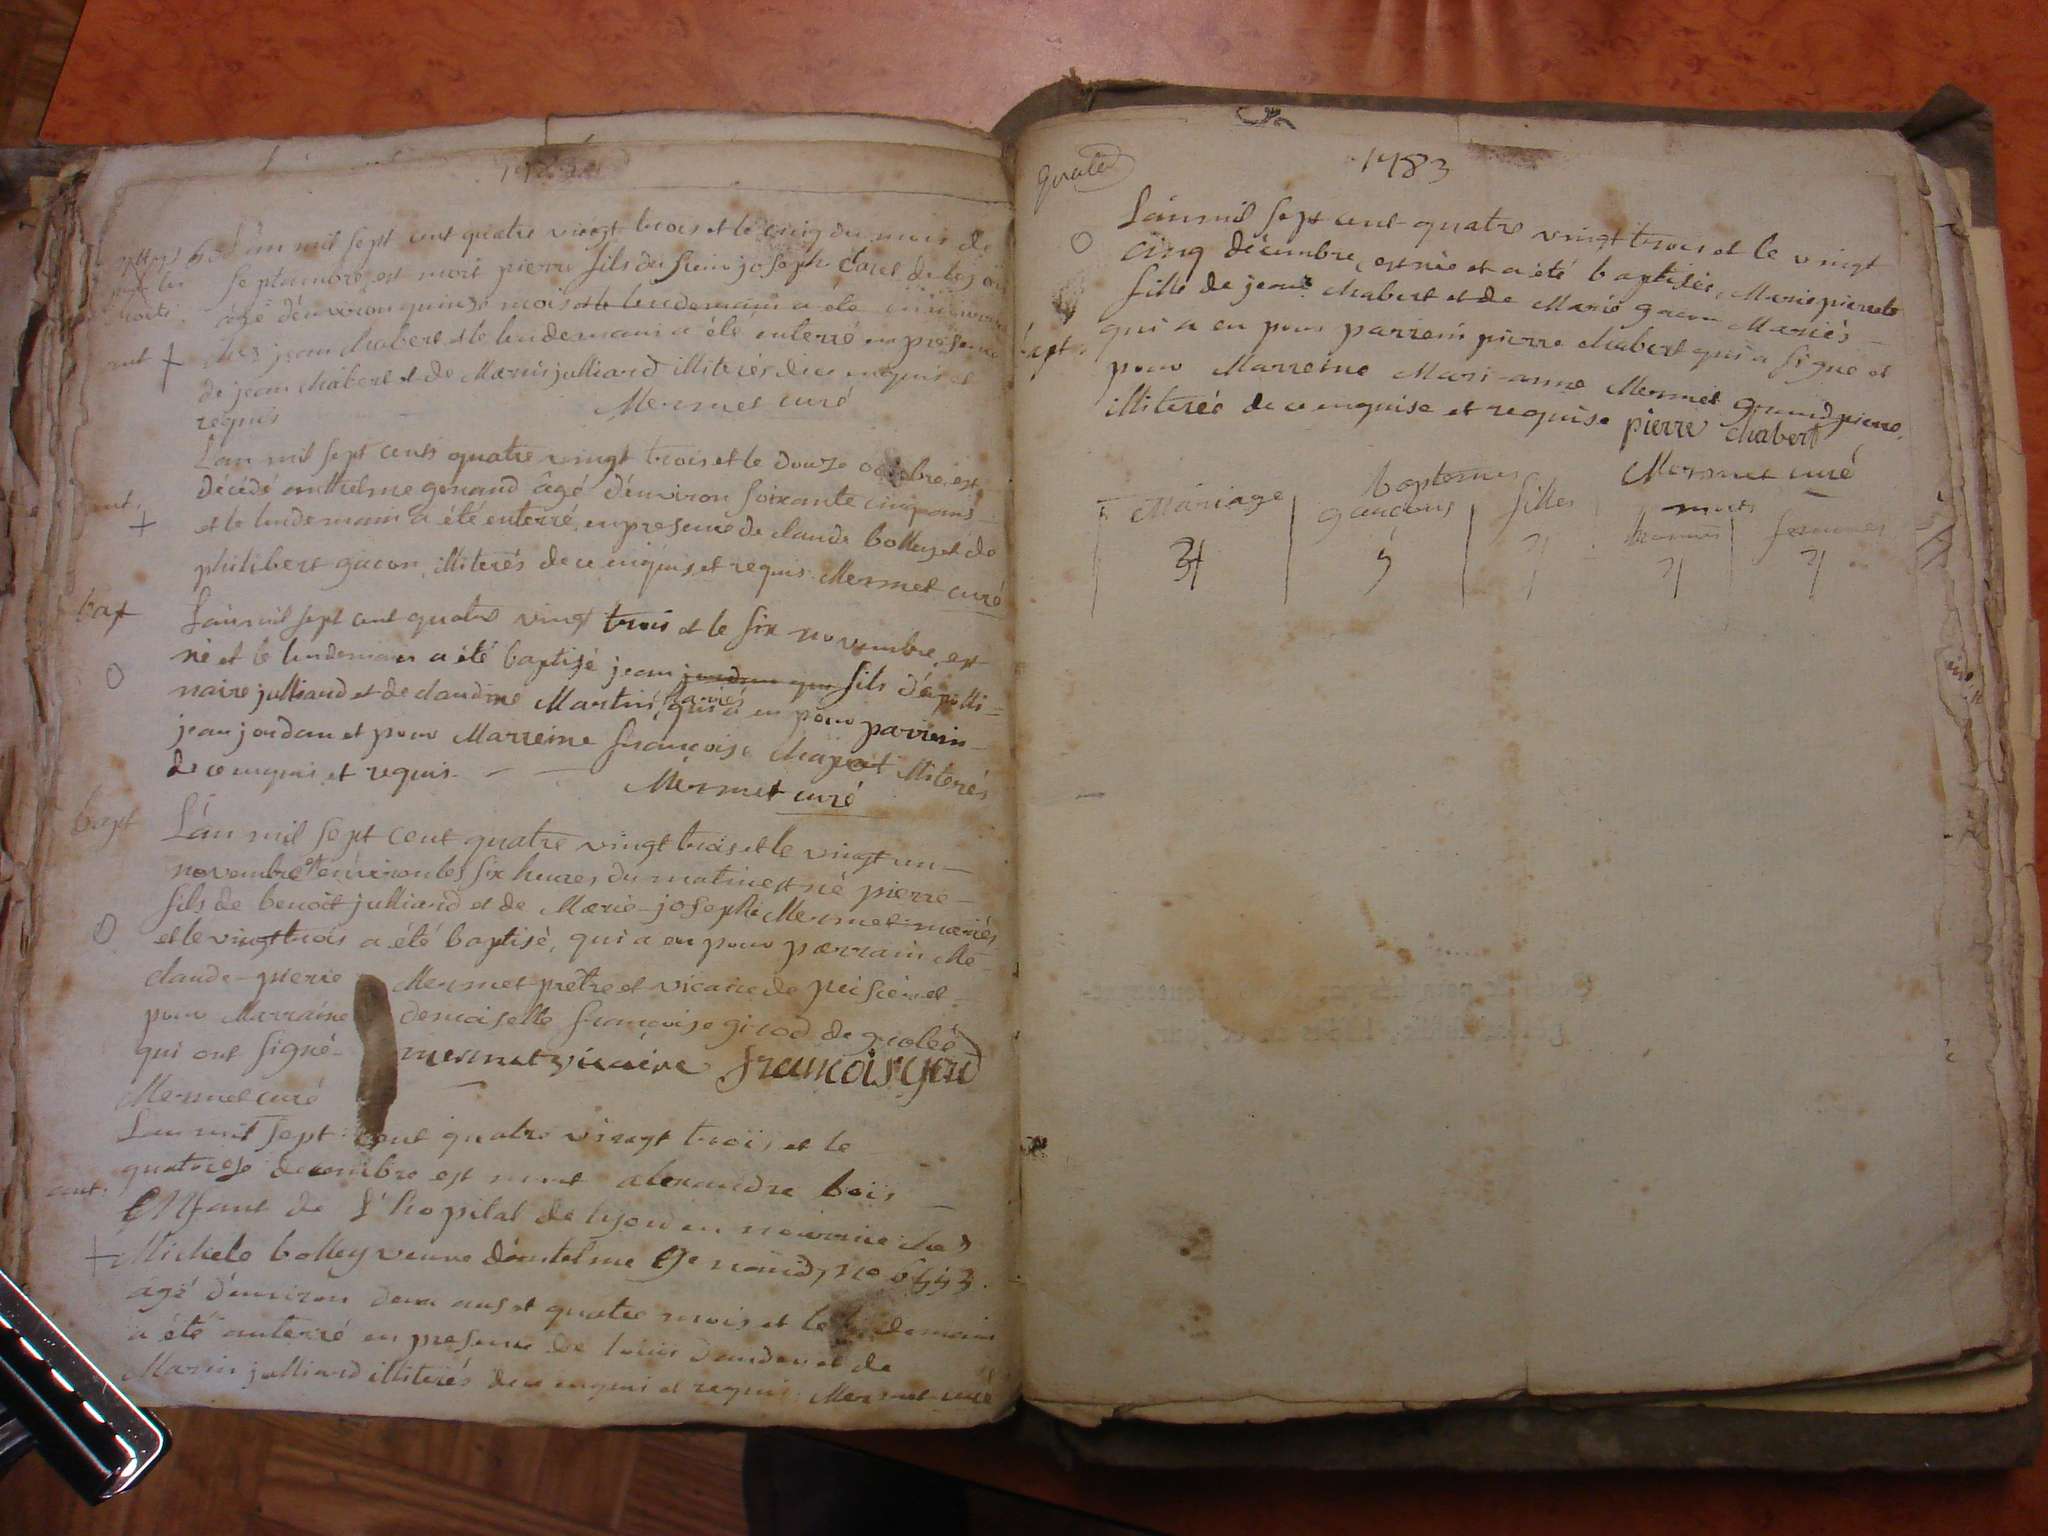 L'an mil sept cent quatre vingt trois et le cinq du mois de
septambre, est mort pierre fils du sieur joseph
agé d'environ quinze mois et le lendemain a été
chez jean chabert, et le lendemain a été enterré en presence
de jean chabert et de Marin julliard illiterés de ce enquis et
requis Mermet curé
L'an mil sept cents quatre vingt trois et le douze octobre, est
décédé anthelme genand âgé d'environ soixante cinq ans
ent.
et le lendemain a été enterré, en presence de claude bolley et de
philibert gacon illiterés de ce enquis et requis Mermet curé
bap
L'an mil sept cent quatre vingt trois et le six novembre, est
né et le lendemain a été baptisé jean fils d'apolli-
naire julliard et de claudine Martin, mariés qui a eu pour parrein
jean jordan et pour Marreine françoise chapot illiterés
de ce enquis et requis. Mermet curé
bapt
L'an mil sept cent quatre vingt trois et le vingt un
novembre et environ les six heures du matin est né pierre
fils de benoit julliard et de Marie-josephe Mermet mariés
et le vingt trois a été baptisé, qui a eu pour parrain Me
claude-pierre Mermet prêtre et vicaire de et
pour Marraine demoiselle françoise girod de
qui ont signé mermet vicaire
Mermet curé
L'an mil sept cent quatre vingt trois et le
quatorze decembre est mort alexandre bois
ent.
ENfant de L'hopital de lyon en nourrice chez
Michele bolley veuve d'antelme Genand, no
agé d'environ deux ans et quatre mois et le lendemain
a été anterré en presence de louis et de
Marin julliard illiterés de ce enquis et requis Mermet curé
1783
L'an mil sept cent quatre vingt trois et le vingt
cinq décembre, est née et a été baptisée, Marie pierrette
fille de jean chabert et de Marie gacon Mariés
bapt.
qui a eu pour parrein pierre chabert qui a signé et
pour Marreine Mari-anne Mermet
illiterée de ce enquise et requise pierre chabert
Mermet curé
Mariage baptemes morts
garçons filles hommes femmes